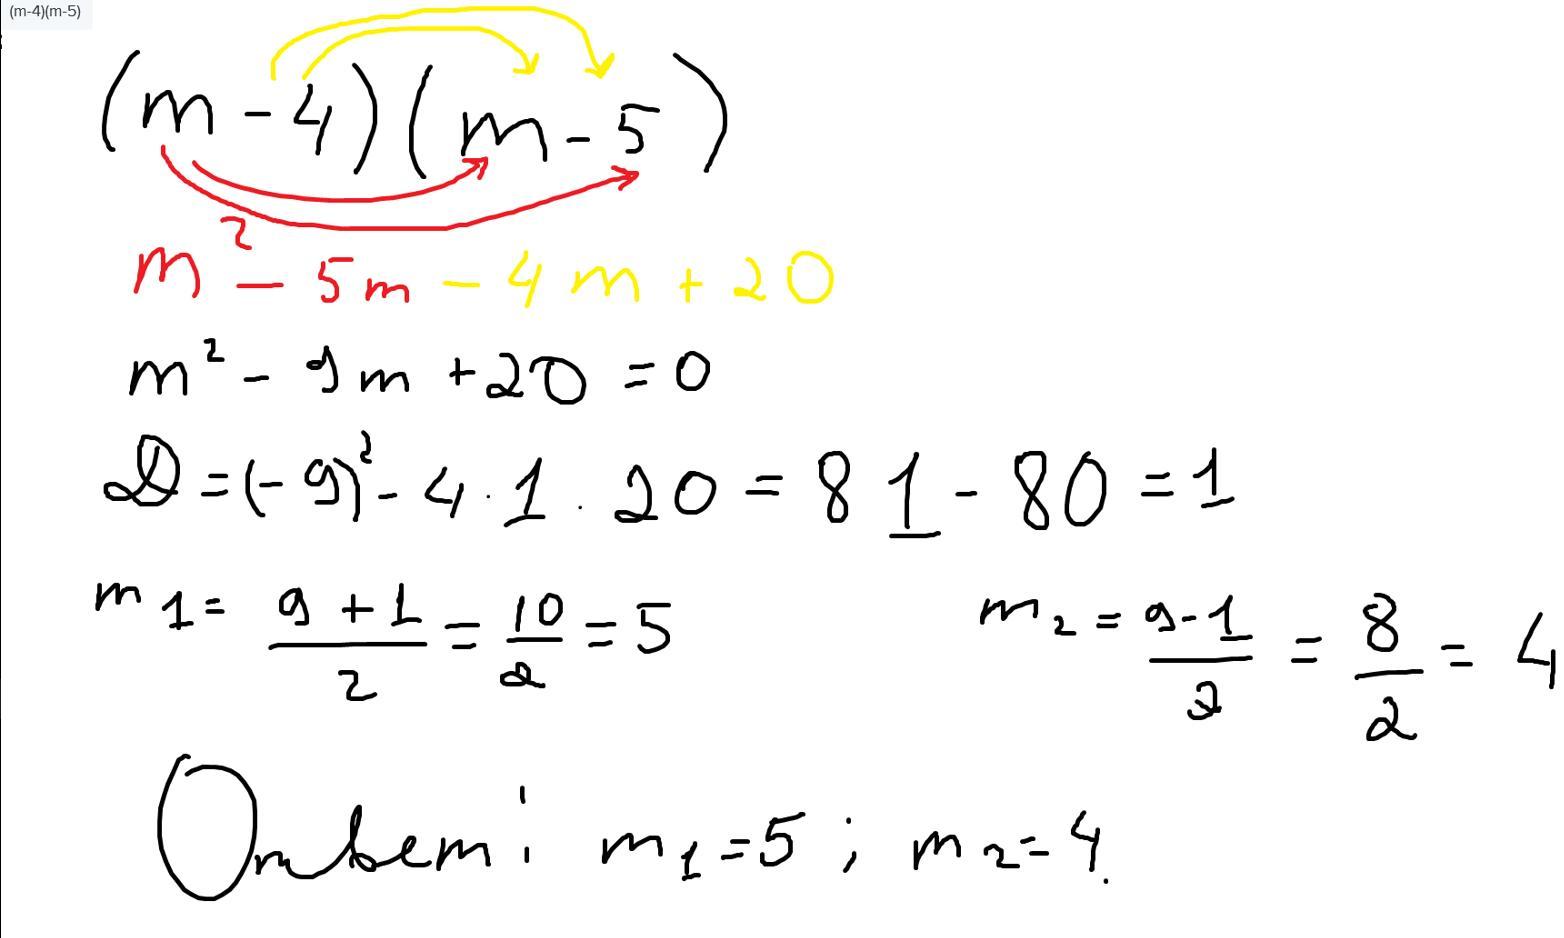 (m-4)(m-5)
(m - 4)(m - 5)
m² - 5m - 4m + 20
m² - 9m + 20 = 0
D = (-9)² - 4 · 1 · 20 = 81 - 80 = 1
m1 = (9 + 1)/2 = 10/2 = 5 m2 = (9 - 1)/2 = 8/2 = 4
Ответ: m1 = 5 ; m2 = 4.